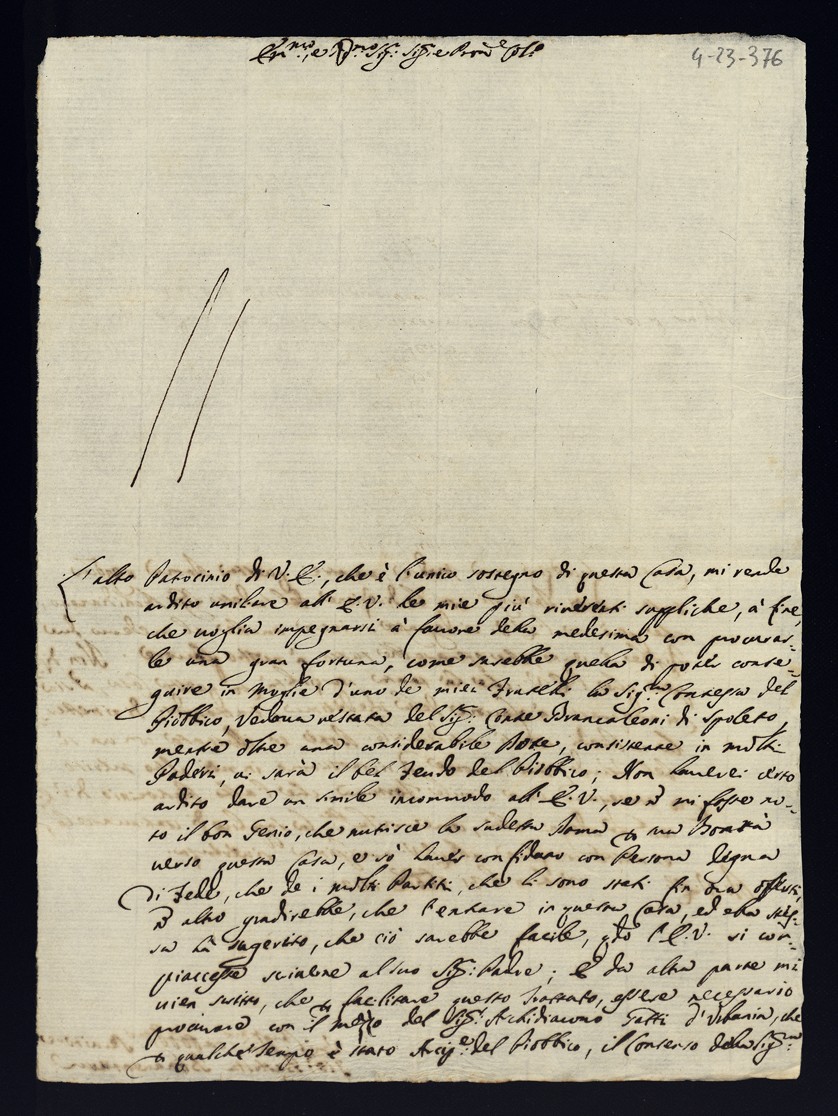 Em.mo, e R.mo Sig: Sig: e Pron.e Col.o
4-23-376
L'alto Patocinio di V.E., che è l'unico sostegno di questa Casa, mi rende
ardito umiliare all' E.V. le mie più riverenti suppliche, à fine,
che voglia impegnarsi à favore della medesima con procurar-
le una gran fortuna, come sarebbe quella di poter conse-
guire in moglie d'uno de miei Fratelli la Sig.ra Contessa del
Piobbico, Vedova restata del Sig: Conte Brancaleoni di Spoleto,
mentre oltre una considerabile Dote, consistente in molti
Poderi, vi sarà il bel Feudo del Piobbico; Non haverei certo
ardito dare un simile incommodo all' E.V., se ñ mi fosse no-
to il bon Genio, che nutrisce la sudetta Dama p sua Bontà
verso questa Casa, e sò haver confidato con Persona degna
di Fede, che de i molti Partiti, che li sono stati fin ora offerti,
ñ altro gradirebbe, che l'entrare in questa Casa, ed essa stes-
sa hà sugerito, che ciò sarebbe facile, qdo l'E.V. si com-
piacesse scriverne al suo Sig: Padre; E da altra parte mi
vien scritto, che p facilitare questo Trattato, essere necessario
procurare con il mezo del Sig: Archidiacono Gatti d'Urbania, che
p qualche tempo è stato Arcip.e del Piobbico, il Consenso della Sig.ra